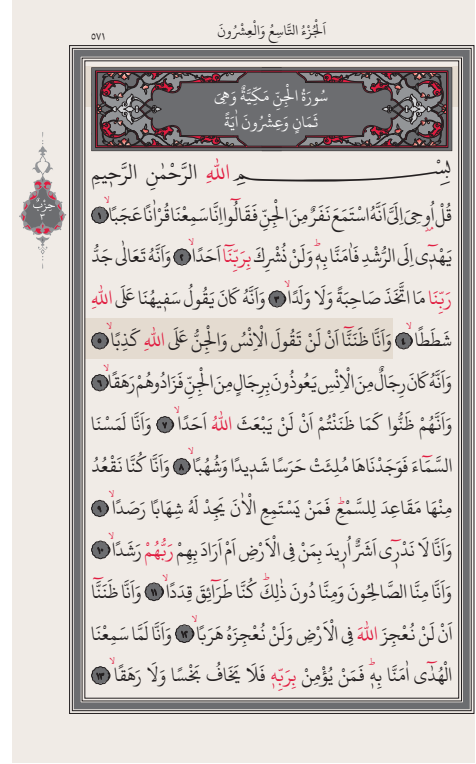 ٥٧١
اَلْجُزْءُ التَّاسِعُ وَالْعِشْرُونَ
سُورَةُ الْجِنِّ مَكِّيَّةٌ وَهِيَ
ثَمَانٍ وَعِشْرُونَ اٰيَةً
حِزْبٌ
بِسْمِ اللّٰهِ الرَّحْمٰنِ الرَّحِيمِ
قُلْ اُوحِيَ اِلَيَّ اَنَّهُ اسْتَمَعَ نَفَرٌ مِنَ الْجِنِّ فَقَالُٓوا اِنَّا سَمِعْنَا قُرْاٰنًا عَجَبًاۙ ١
يَهْدٖٓي اِلَى الرُّشْدِ فَاٰمَنَّا بِهٖۜ وَلَنْ نُشْرِكَ بِرَبِّنَٓا اَحَدًاۙ ٢ وَاَنَّهُ تَعَالٰى جَدُّ
رَبِّنَا مَا اتَّخَذَ صَاحِبَةً وَلَا وَلَدًاۙ ٣ وَاَنَّهُ كَانَ يَقُولُ سَفٖيهُنَا عَلَى اللّٰهِ
شَطَطًاۙ ٤ وَاَنَّا ظَنَنَّٓا اَنْ لَنْ تَقُولَ الْاِنْسُ وَالْجِنُّ عَلَى اللّٰهِ كَذِبًاۙ ٥
وَاَنَّهُ كَانَ رِجَالٌ مِنَ الْاِنْسِ يَعُوذُونَ بِرِجَالٍ مِنَ الْجِنِّ فَزَادُوهُمْ رَهَقًاۙ ٦
وَاَنَّهُمْ ظَنُّوا كَمَا ظَنَنْتُمْ اَنْ لَنْ يَبْعَثَ اللّٰهُ اَحَدًاۙ ٧ وَاَنَّا لَمَسْنَا
السَّمَٓاءَ فَوَجَدْنَاهَا مُلِئَتْ حَرَسًا شَدٖيدًا وَشُهُبًاۙ ٨ وَاَنَّا كُنَّا نَقْعُدُ
مِنْهَا مَقَاعِدَ لِلسَّمْعِۜ فَمَنْ يَسْتَمِعِ الْاٰنَ يَجِدْ لَهُ شِهَابًا رَصَدًاۙ ٩
وَاَنَّا لَا نَدْرٖٓي اَشَرٌّ اُرٖيدَ بِمَنْ فِي الْاَرْضِ اَمْ اَرَادَ بِهِمْ رَبُّهُمْ رَشَدًاۙ ١٠
وَاَنَّا مِنَّا الصَّالِحُونَ وَمِنَّا دُونَ ذٰلِكَۜ كُنَّا طَرَٓائِقَ قِدَدًاۙ ١١ وَاَنَّا ظَنَنَّٓا
اَنْ لَنْ نُعْجِزَ اللّٰهَ فِي الْاَرْضِ وَلَنْ نُعْجِزَهُ هَرَبًاۙ ١٢ وَاَنَّا لَمَّا سَمِعْنَا
الْهُدٰٓى اٰمَنَّا بِهٖۜ فَمَنْ يُؤْمِنْ بِرَبِّهٖ فَلَا يَخَافُ بَخْسًا وَلَا رَهَقًاۙ ١٣